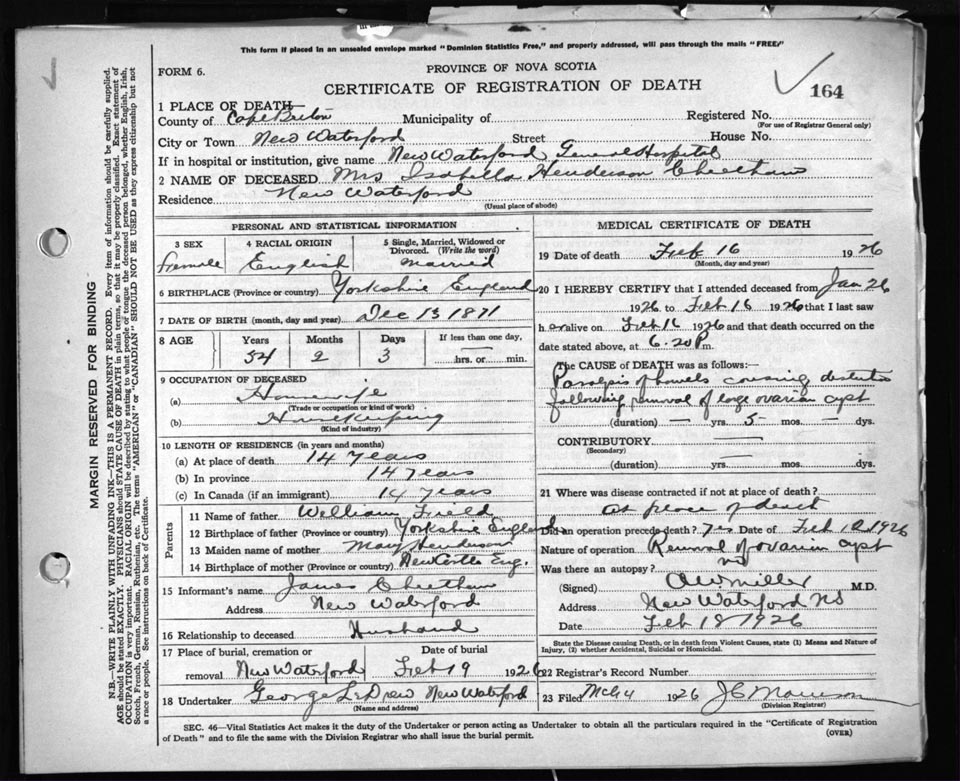 This form if placed in an unsealed envelope marked "Dominion Statistics Free," and properly addressed, will pass through the mails "FREE"
FORM 6.
PROVINCE OF NOVA SCOTIA
CERTIFICATE OF REGISTRATION OF DEATH
164
1 PLACE OF DEATH—
County of Cape Breton Municipality of Registered No.
(For use of Registrar General only)
City or Town New Waterford Street House No.
If in hospital or institution, give name New Waterford General Hospital
2 NAME OF DECEASED Mrs Isabella Henderson Cheetham
Residence New Waterford
(Usual place of abode)
PERSONAL AND STATISTICAL INFORMATION
3 SEX 4 RACIAL ORIGIN 5 Single, Married, Widowed or Divorced. (Write the word)
Female English Married
6 BIRTHPLACE (Province or country) Yorkshire England
7 DATE OF BIRTH (month, day and year) Dec 13 1871
8 AGE Years Months Days If less than one day,
54 2 3 hrs. or min.
9 OCCUPATION OF DECEASED
(a) Housewife
(Trade or occupation or kind of work)
(b) Housekeeping
(Kind of industry)
10 LENGTH OF RESIDENCE (in years and months)
(a) At place of death 14 years
(b) In province 14 years
(c) In Canada (if an immigrant) 14 years
Parents
11 Name of father William Field
12 Birthplace of father (Province or country) Yorkshire England
13 Maiden name of mother Mary Henderson
14 Birthplace of mother (Province or country) Newcastle Eng.
15 Informant's name James Cheetham
Address New Waterford
16 Relationship to deceased Husband
17 Place of burial, cremation or removal Date of burial
New Waterford Feb 19 1926
18 Undertaker George LeDrew New Waterford
(Name and address)
MEDICAL CERTIFICATE OF DEATH
19 Date of death Feb 16 1926
(Month, day and year)
20 I HEREBY CERTIFY that I attended deceased from Jan 26
1926 to Feb 16 1926 that I last saw
her alive on Feb 16 1926 and that death occurred on the
date stated above, at 6.20 P.m.
The CAUSE of DEATH was as follows:—
Paralysis of bowels causing
following removal of large ovarian cyst
(duration) — yrs. 5 mos. — dys.
CONTRIBUTORY
(Secondary)
(duration) yrs. mos. dys.
21 Where was disease contracted if not at place of death?
At place of death
Did an operation precede death? Yes Date of Feb 1926
Nature of operation Removal of ovarian cyst
Was there an autopsy? no
(Signed) Miller M.D.
Address New Waterford NS
Date Feb 18 1926
State the Disease causing Death, or in death from Violent Causes, state (1) Means and Nature of Injury, (2) whether Accidental, Suicidal or Homicidal.
22 Registrar's Record Number
23 Filed 1926
(Division Registrar)
SEC. 46—Vital Statistics Act makes it the duty of the Undertaker or person acting as Undertaker to obtain all the particulars required in the "Certificate of Registration
of Death" and to file the same with the Division Registrar who shall issue the burial permit.
(OVER)
MARGIN RESERVED FOR BINDING
N.B.—WRITE PLAINLY WITH UNFADING INK—THIS IS A PERMANENT RECORD. Every item of information should be carefully supplied.
AGE should be stated EXACTLY. PHYSICIANS should STATE CAUSE OF DEATH in plain terms, so that it may be properly classified. Exact statement of
OCCUPATION is very important. RACIAL ORIGIN will be described by stating to what people or tongue the deceased person belonged, whether English, Irish,
Scotch, French, German, Russian, Ruthenian, etc. The terms "AMERICAN" or "CANADIAN" SHOULD NOT BE USED as they express citizenship but not
a race or people. See instructions on back of Certificate.